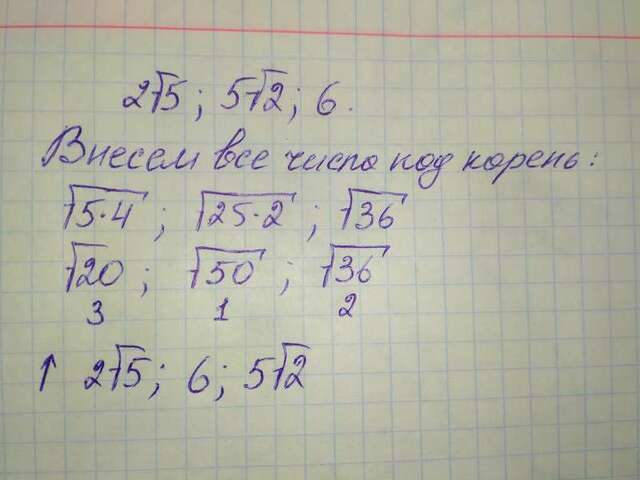 2√5; 5√2; 6.
Внесем все числа под корень:
√5·4; √25·2; √36
√20; √50; √36
3 1 2
↑ 2√5; 6; 5√2